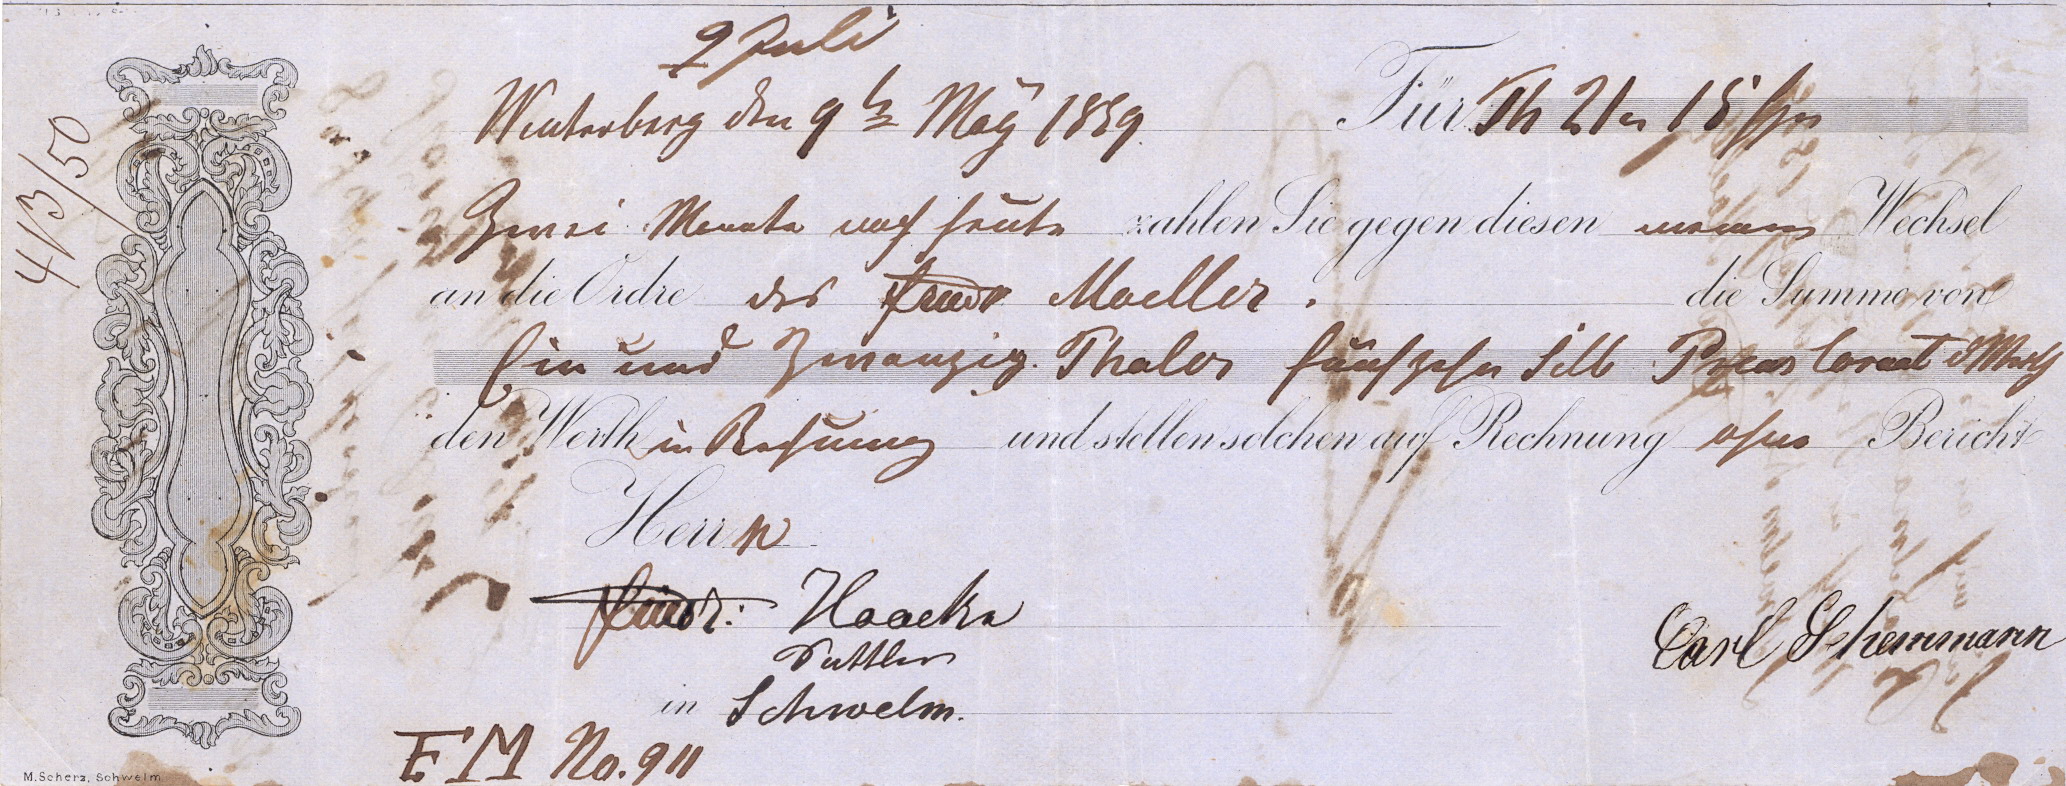 9 Juli
Winterberg den 9ten May 1859. Für Th 21 15 Sgr
Zwei Monate nach heute zahlen Sie gegen diesen meinen Wechsel
an die Ordre des Friedr Moeller. die Summe von
Ein und Zwanzig Thaler fünfzehn Silb Preus Corant
den Werth in Rechnung und stellen solchen auf Rechnung ohne Bericht
Herrn
Friedr: Haacke
Sattler
in Schwelm.
Carl Schemmann
EM No. 911
4V3/50
M. Scherz, Schwelm